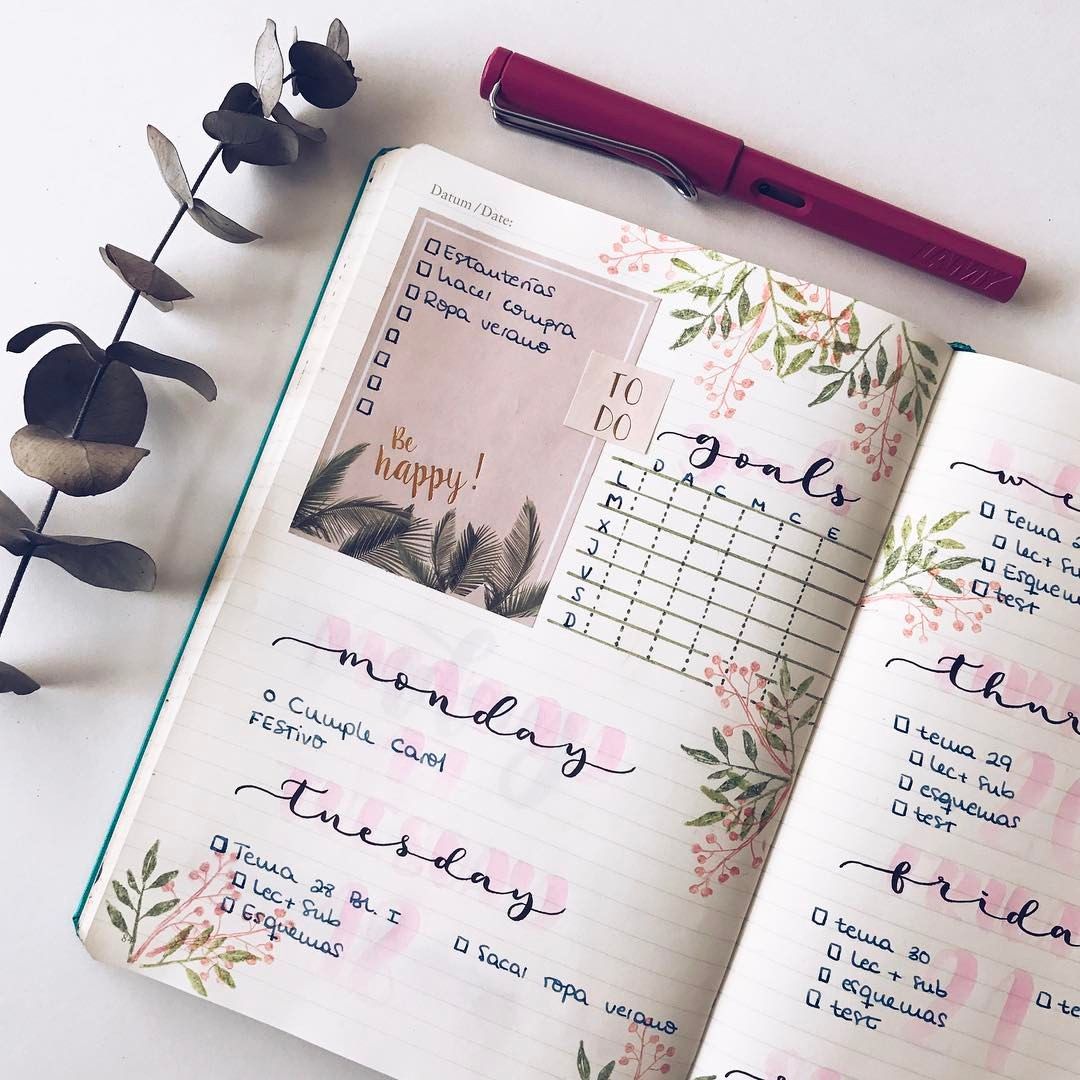 Datum / Date:
Estanterías
hacer compra
Ropa verano
Be
happy!
TO
DO
goals
D A C M C E
L
M
X
J
V
S
D
monday
o Cumple carol
FESTIVO
tuesday
Tema 28 Bl. I
Lec + Sub
Esquemas
Sacar ropa verano
we
tema 2
lec + sub
Esquem
test
thur
tema 29
lec + sub
esquemas
test
20
frida
tema 30
lec + sub
esquemas
test
te
21
LAMY